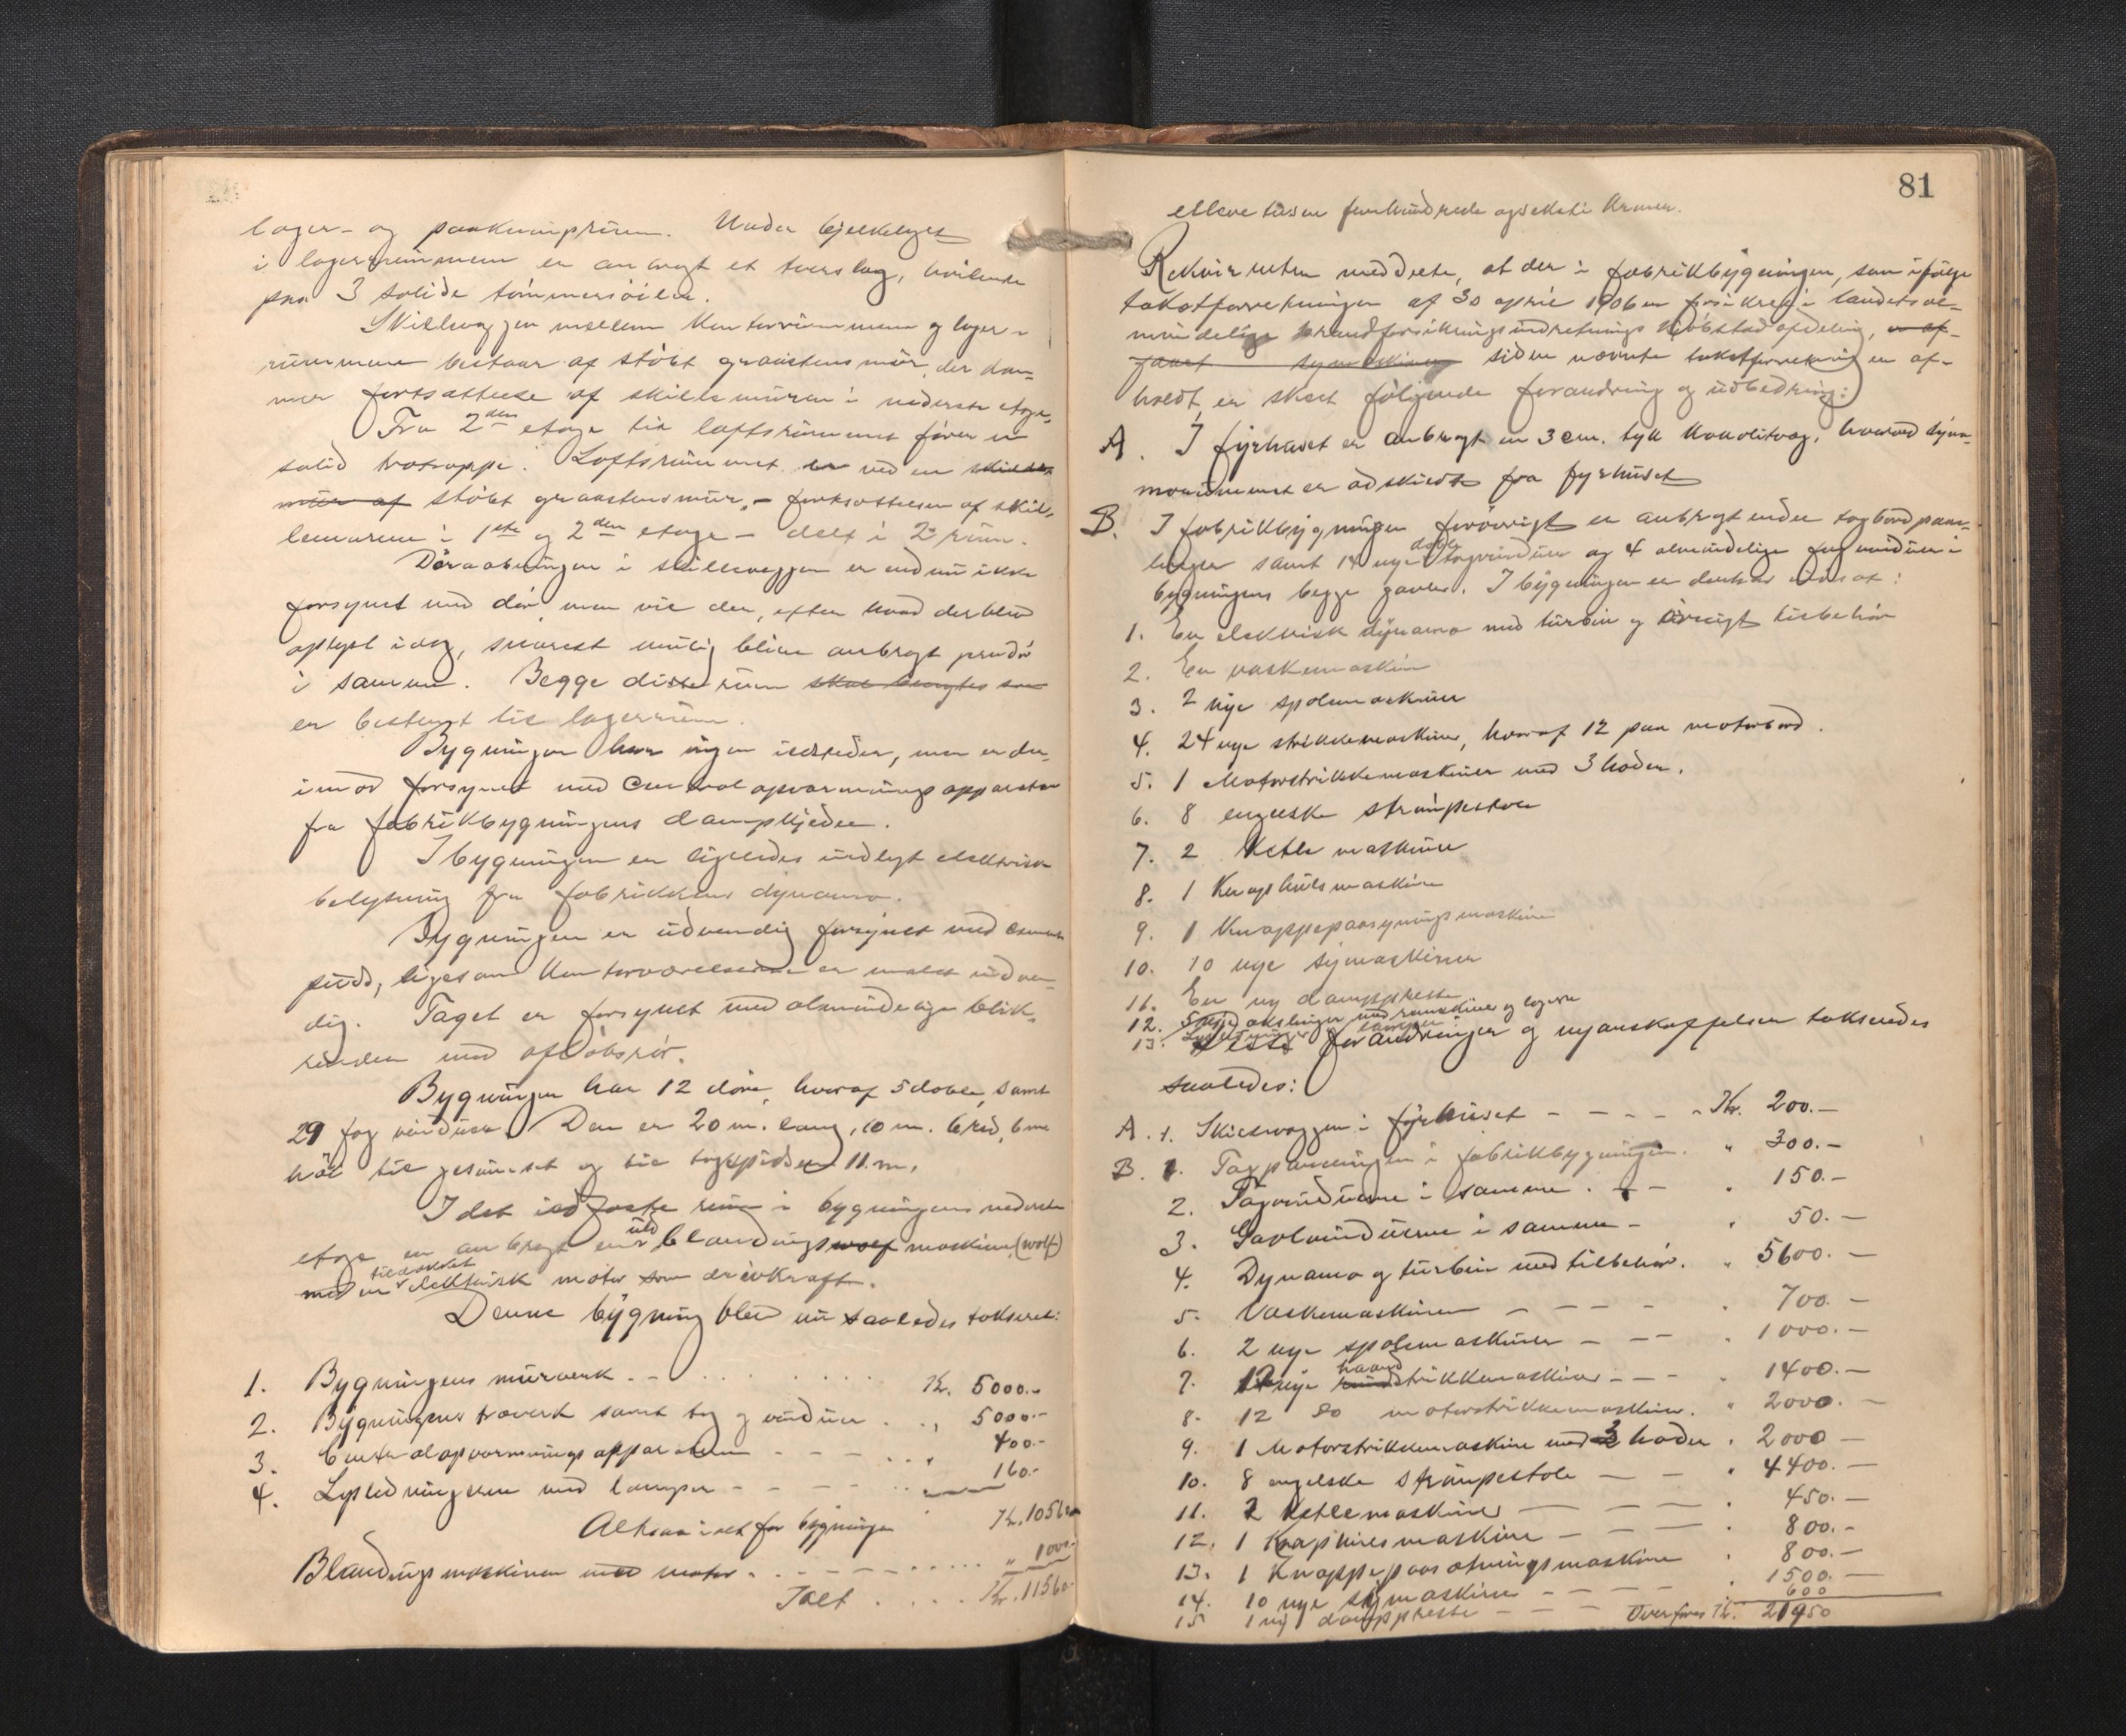 lager- og pakkumpsrum. Under bjelkelaget
i lagerrummene er anbragt et tverslag, hvilende
paa 3 solide tømmersøiler.
Skilleveggen mellem kontorrummene og lager-
rummene bestaar af støbt graastensmur, der dan-
ner fortsættelse af skillemuren i nederste etage.
Fra 2den etage til loftsrummet fører en
solid trætrappe. Loftsrummet er ved en skille-
mur af støbt graastensmur, – fortsættelsen af skil-
lemurene i 1ste og 2den etage – delt i 2 rum.
Døraabningen i skilleveggen er endnu ikke
forsynet med dør men vil der, efter hvad der blev
oplyst idag, snarest mulig blive anbragt
i samme. Begge disse rum skal benyttes som
er bestemt til lagerrum.
Bygningen har ingen ildsteder, men er der-
imod forsynet med Centralopvarmningsapparater
fra fabrikbygningens dampkjedel.
I bygningen er ligeledes indlagt elektrisk
belysning fra fabrikkens dynamo.
Bygningen er udvendig forsynet med cement-
puds, ligesom kontorværelserne er malet indven-
dig. Taget er forsynet med almindelige blik-
render med afløbsrør.
Bygningen har 12 døre, hvoraf 5 doble, samt
29 fag vinduer. Den er 20 m. lang, 10 m. bred, 6 m
høi til gesimset og til tagspidsen 11 m.
I det ildfaste rum i bygningens nederste
etage er anbragt en uld blandingswolf maskine (wolf)
med en tildækket elektrisk motor som drivkraft.
Denne bygning blev nu saaledes takseret:
1. Bygningens murverk . . . . . Kr. 5000.-
2. Bygningens træverk samt tag og vinduer . . „ 5000.-
3. Centralopvarmningsapparaterne - - - . . „ 400.-
4. Lysledningerne med lamper - - - - . . 160.-
Altsaa ialt for bygningen Kr. 10560
Blandingsmaskinen med motor . . - - - . . . . „ 1000.-
Ialt . . . . Kr. 11560.-
81
elleve tusen femhundrede og seksti Kroner.
Rekvirenten meddelte, at der i fabrikbygningen, som ifølge
takstforretningen af 30 april 1906 er forsikret i landets al-
mindelige brandforsikringsindretnings Kjøbstadafdeling, er af-
siden nævnte takstforretning er af-
holdt, er skeet følgende forandring og udbedring:
A. I fyrhuset er anbragt en 3 cm. tyk væg, hvorved dyna-
morummet er adskildt fra fyrhuset
B. I fabrikbygningen forøvrigt er anbragt under tagbord paa-
samt 14 nye doble tagvinduer og 4 almindelige fag vinduer i
bygningens begge gavler. I bygningen er derhos indsat:
1. En elektrisk dynamo med turbin og øvrigt tilbehør
2. En vaskemaskin
3. 2 nye spolemaskiner
4. 24 nye strikkemaskiner, hvoraf 12 paa motorbord.
5. 1 Motorstrikkemaskiner med 3 hoder.
6. 8 engelske strømpestole
7. 2 Ketlemaskiner
8. 1 Knaphulsmaskine
9. 1 Knappepaasyningsmaskine
10. 10 nye symaskiner
11. En ny damppresse
12. 5 nye akslinger med remskiver og lagere
13. Lysledninger lamper
Disse forandringer og nyanskaffelser takseredes
saaledes:
A. 1. Skilleveggen i fyrhuset - - - - - Kr. 200.-
B. 1. Tagpanelingen i fabrikbygningen. „ 300.-
2. Tagvinduerne i samme . - - „ 150.-
3. Gavlvinduerne i samme - „ 50.-
4. Dynamo og turbin med tilbehør. „ 5600.-
5. Vaskemaskinen - - - - „ 700.-
6. 2 nye spolemaskiner - - - „ 1000.-
7. 12 nye haandstrikkemaskiner - - - „ 1400.-
8. 12 do motorstrikkemaskiner. „ 2000.-
9. 1 Motorstrikkemaskine med 3 hoder „ 2000 -
10. 8 engelske strømpestole - - „ 4400.-
11. 2 Ketlemaskiner - - - „ 450.-
12. 1 Knaphulsmaskine - - - „ 800.-
13. 1 Knappepaasætningsmaskine „ 800.-
14. 10 nye symaskiner - - - - „ 1500.-
15 1 ny damppresse - - - 600
Overføres Kr. 21950